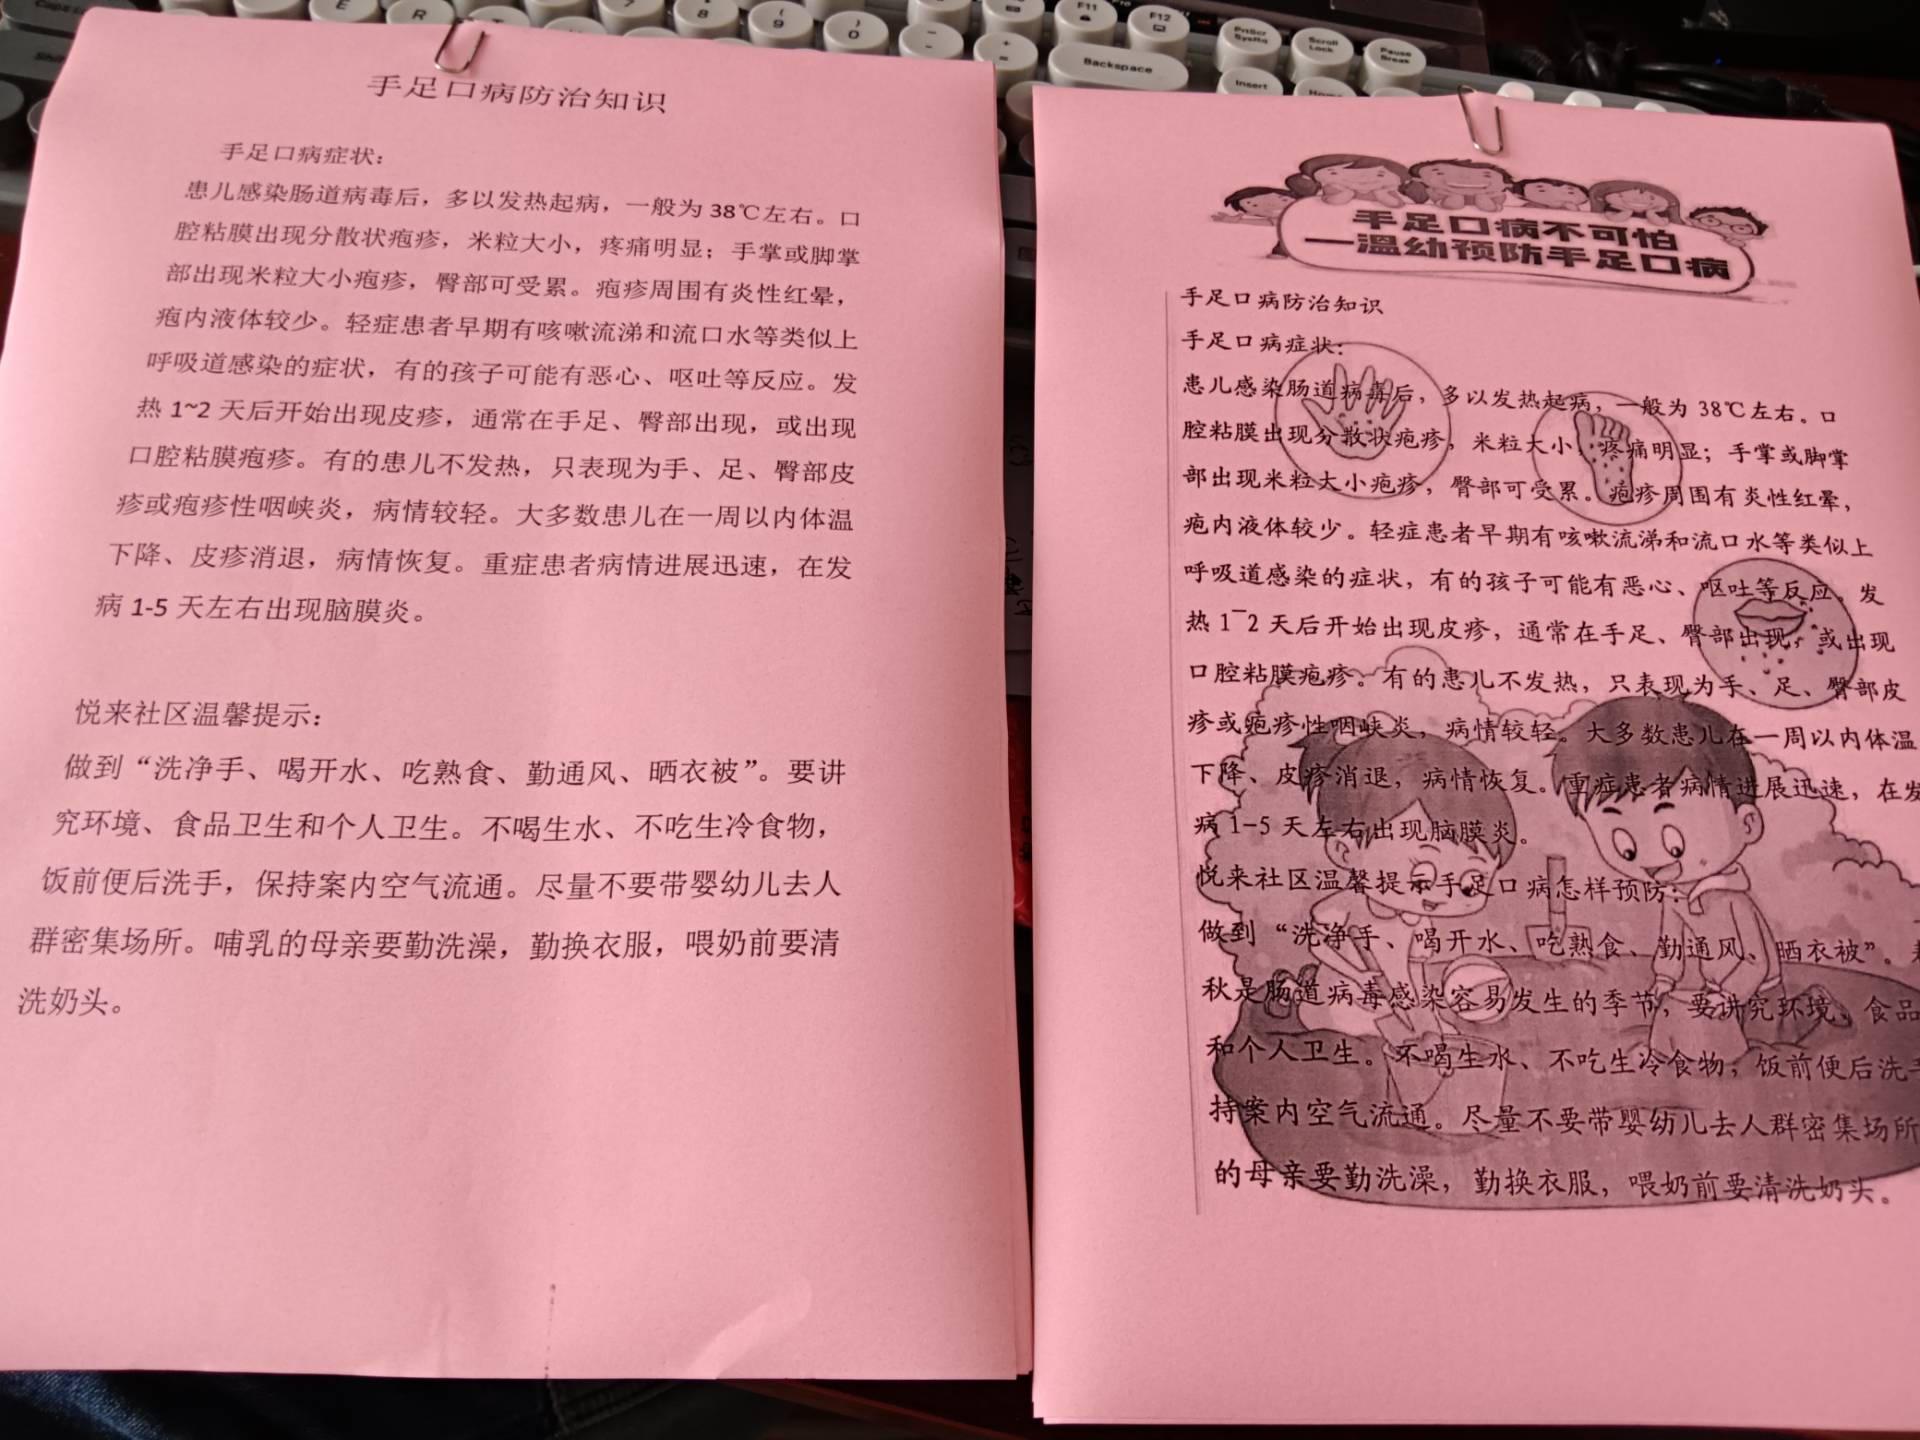 手足口病防治知识
手足口病症状：
患儿感染肠道病毒后，多以发热起病，一般为 38℃左右。口
腔粘膜出现分散状疱疹，米粒大小，疼痛明显；手掌或脚掌
部出现米粒大小疱疹，臀部可受累。疱疹周围有炎性红晕，
疱内液体较少。轻症患者早期有咳嗽流涕和流口水等类似上
呼吸道感染的症状，有的孩子可能有恶心、呕吐等反应。发
热 1~2 天后开始出现皮疹，通常在手足、臀部出现，或出现
口腔粘膜疱疹。有的患儿不发热，只表现为手、足、臀部皮
疹或疱疹性咽峡炎，病情较轻。大多数患儿在一周以内体温
下降、皮疹消退，病情恢复。重症患者病情进展迅速，在发
病 1-5 天左右出现脑膜炎。
悦来社区温馨提示：
做到“洗净手、喝开水、吃熟食、勤通风、晒衣被”。要讲
究环境、食品卫生和个人卫生。不喝生水、不吃生冷食物，
饭前便后洗手，保持案内空气流通。尽量不要带婴幼儿去人
群密集场所。哺乳的母亲要勤洗澡，勤换衣服，喂奶前要清
洗奶头。
手足口病不可怕
一温幼预防手足口病
手足口病防治知识
手足口病症状：
患儿感染肠道病毒后，多以发热起病，一般为 38℃左右。口
腔粘膜出现分散状疱疹，米粒大小，疼痛明显；手掌或脚掌
部出现米粒大小疱疹，臀部可受累。疱疹周围有炎性红晕，
疱内液体较少。轻症患者早期有咳嗽流涕和流口水等类似上
呼吸道感染的症状，有的孩子可能有恶心、呕吐等反应。发
热 1¯2 天后开始出现皮疹，通常在手足、臀部出现，或出现
口腔粘膜疱疹。有的患儿不发热，只表现为手、足、臀部皮
疹或疱疹性咽峡炎，病情较轻。大多数患儿在一周以内体温
下降、皮疹消退，病情恢复。重症患者病情进展迅速，在发
病 1-5 天左右出现脑膜炎。
悦来社区温馨提示手足口病怎样预防：
做到“洗净手、喝开水、吃熟食、勤通风、晒衣被”。
秋是肠道病毒感染容易发生的季节，要讲究环境、食品
和个人卫生。不喝生水、不吃生冷食物，饭前便后洗手
持案内空气流通。尽量不要带婴幼儿去人群密集场所
的母亲要勤洗澡，勤换衣服，喂奶前要清洗奶头。
E
R
7
8
9
0
Backspace
F11
F12
PrtScr
SysRq
Scroll
Lock
Pause
Break
Insert